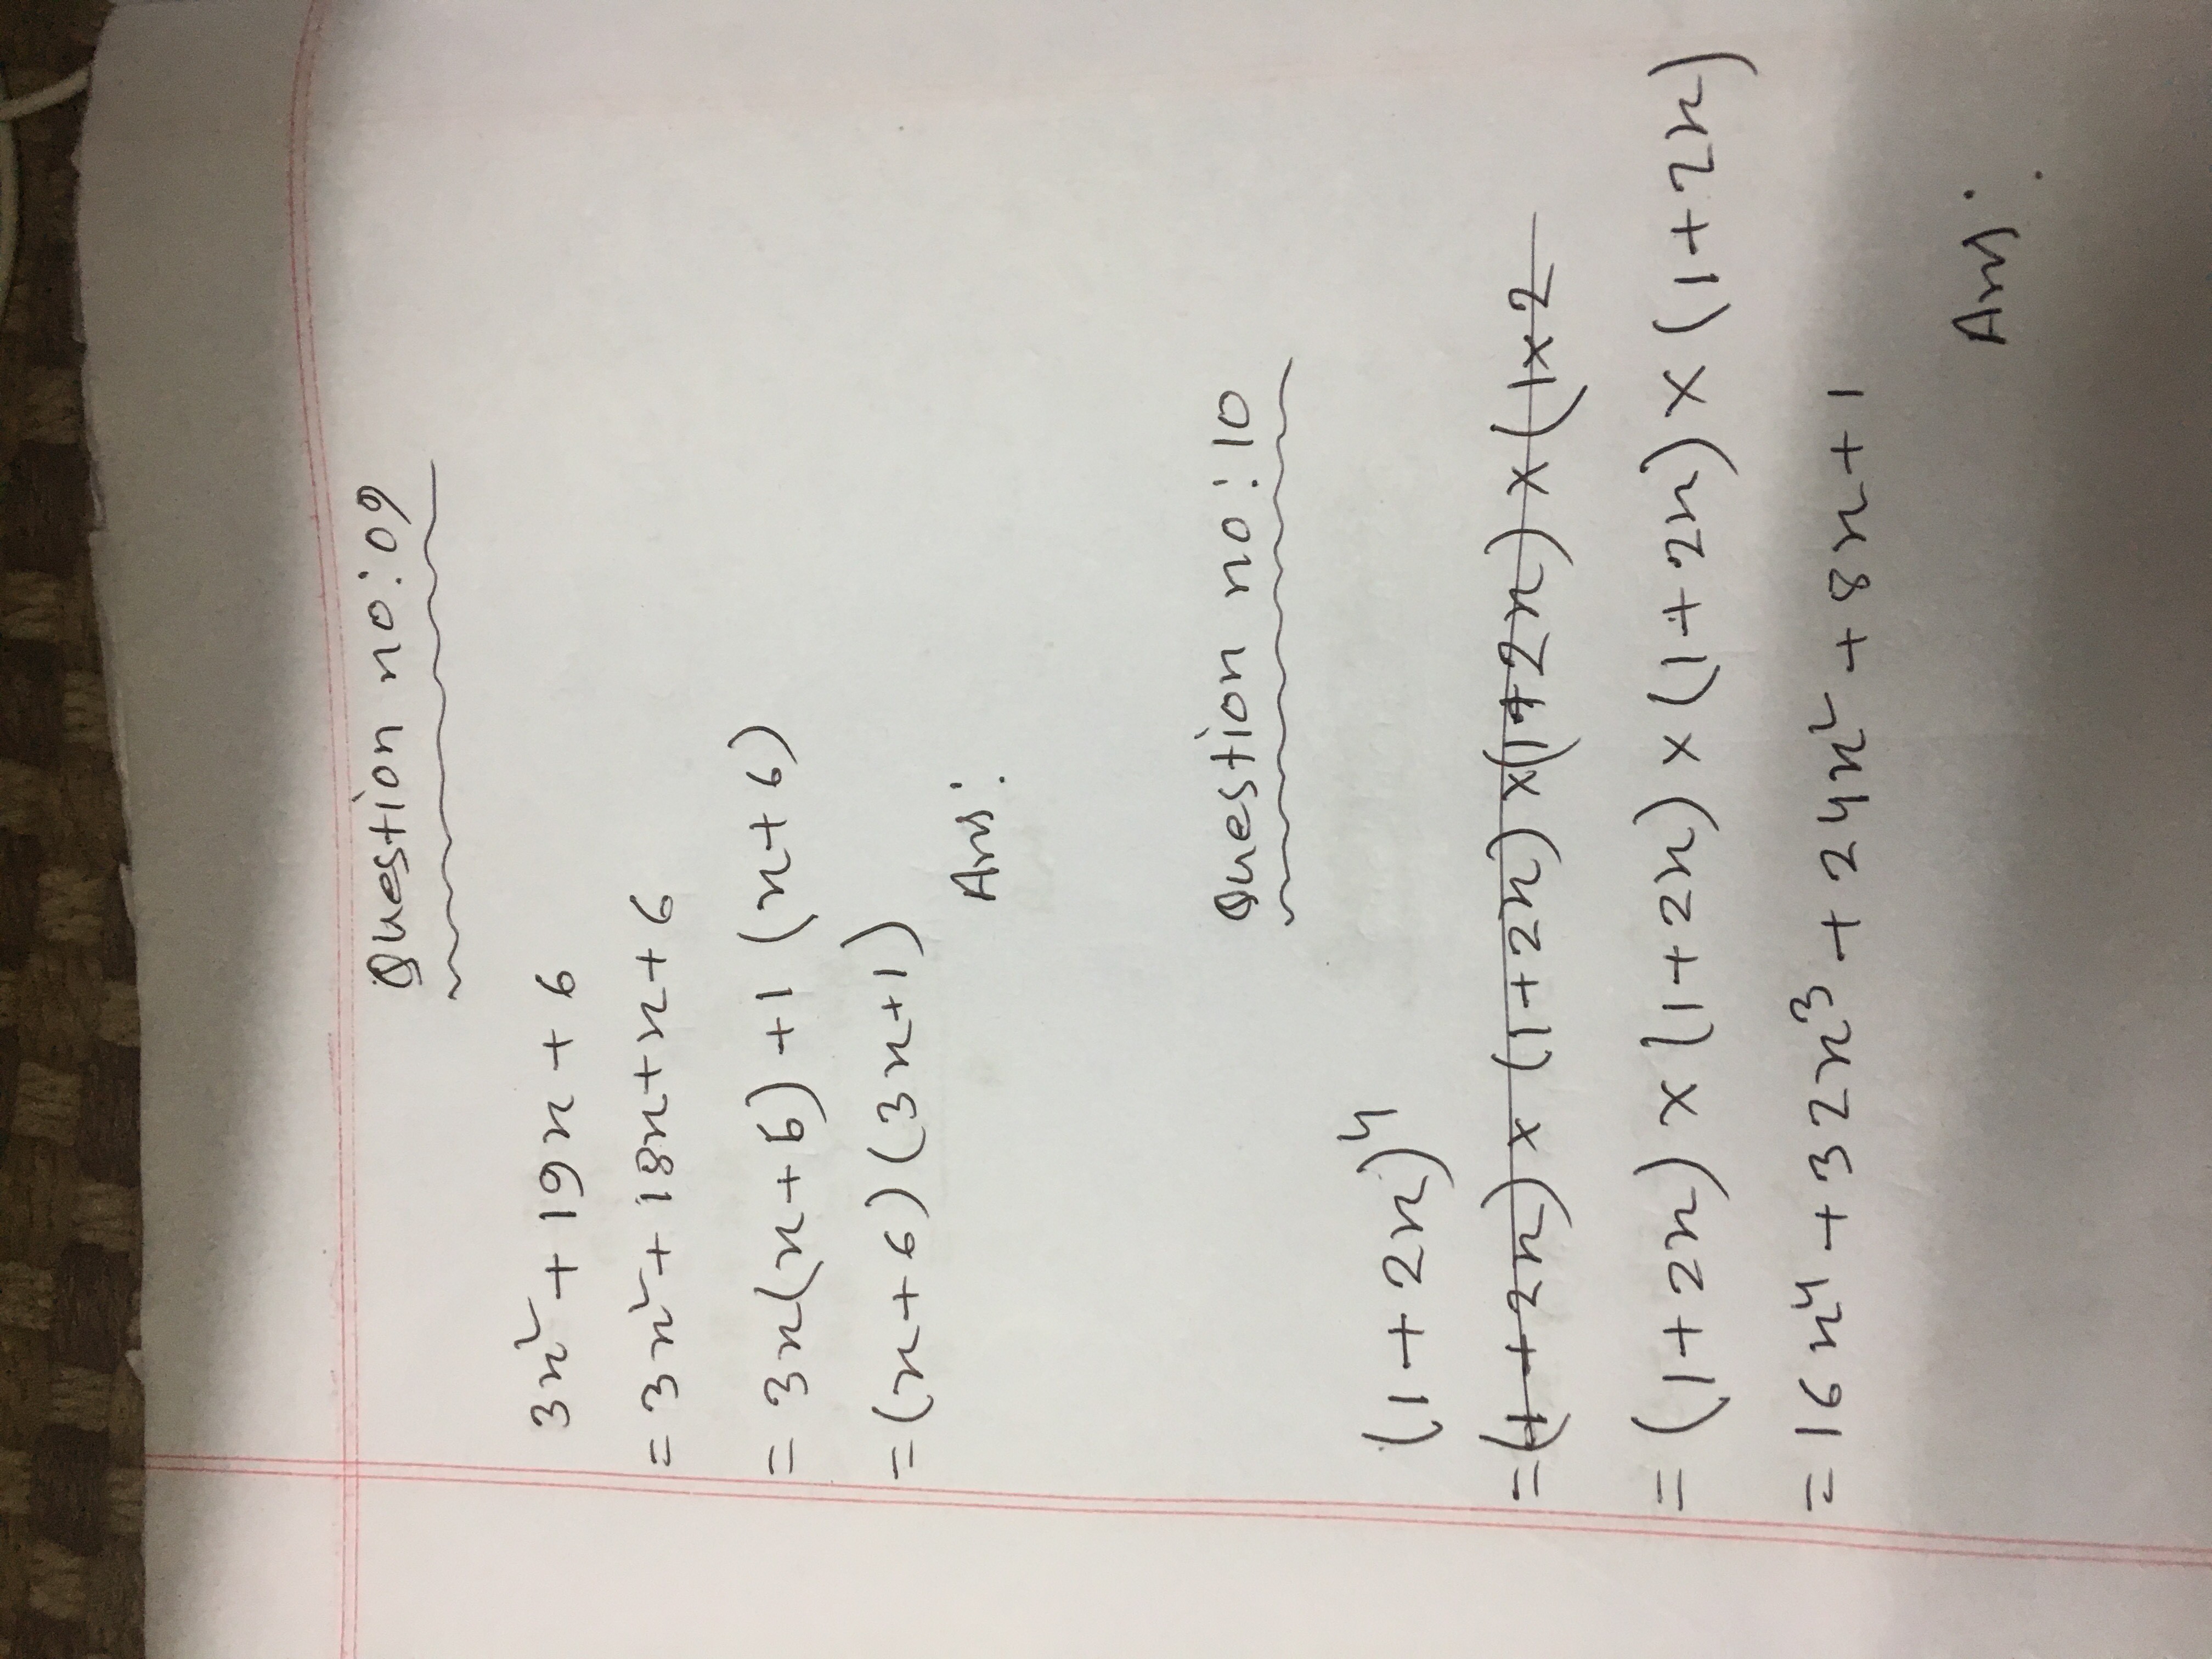 Question no: 09
3x² + 19x + 6
= 3x² + 18x + x + 6
= 3x(x + 6) + 1 (x + 6)
= (x + 6) (3x + 1)
Ans:
Question no: 10
(1 + 2x)⁴
= (1 + 2x) × (1 + 2x) × (1 + 2x) × (1 × 2
= (1 + 2x) × (1 + 2x) × (1 + 2x) × (1 + 2x)
= 16x⁴ + 32x³ + 24x² + 8x + 1
Ans: